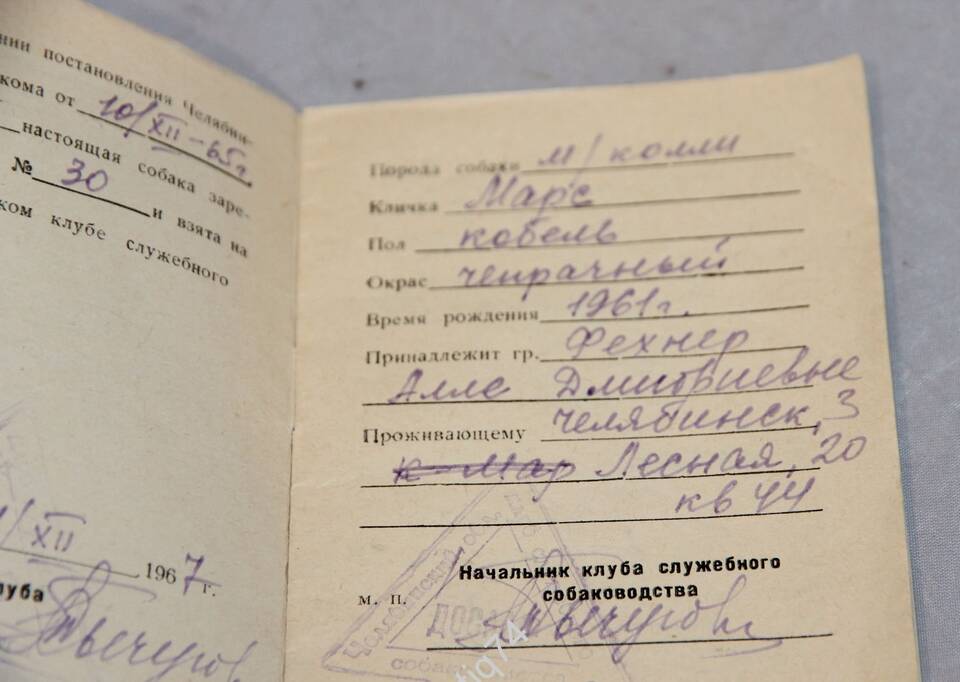 нии постановления Челябин-
кома от 10/XII-65г.
настоящая собака заре-
№ 30 и взята на
ком клубе служебного
XII 1967 г.
луба
Порода собаки м/колли
Кличка Марс
Пол кобель
Окрас чепрачный
Время рождения 1961г.
Принадлежит гр. Фехнер
Алле Дмитриевые
Проживающему Челябинск, 3
к-Мар Лесная, 20
кв 44
Начальник клуба служебного
собаководства
м. п.
Челябинский
ДОС
собак
tiq74